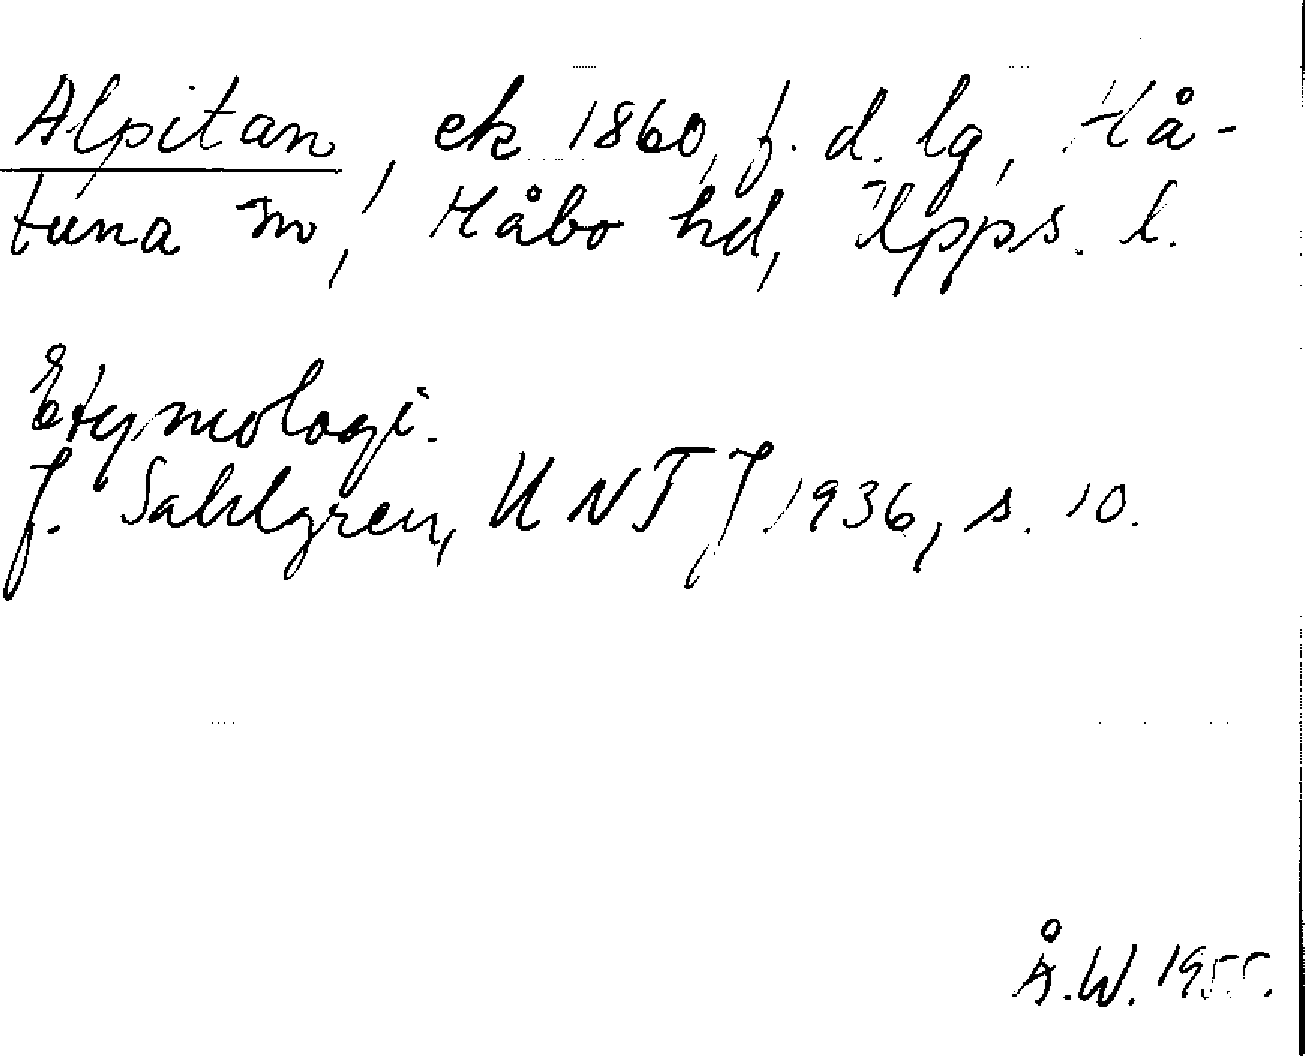 Alpitan, ek 1860, f. d. lg, Hå-
tuna sn, Håbo hd, Upps. l.
Etymologi.
J. Sahlgren, UNT J 1936, s. 10.
Å.W. 1955.